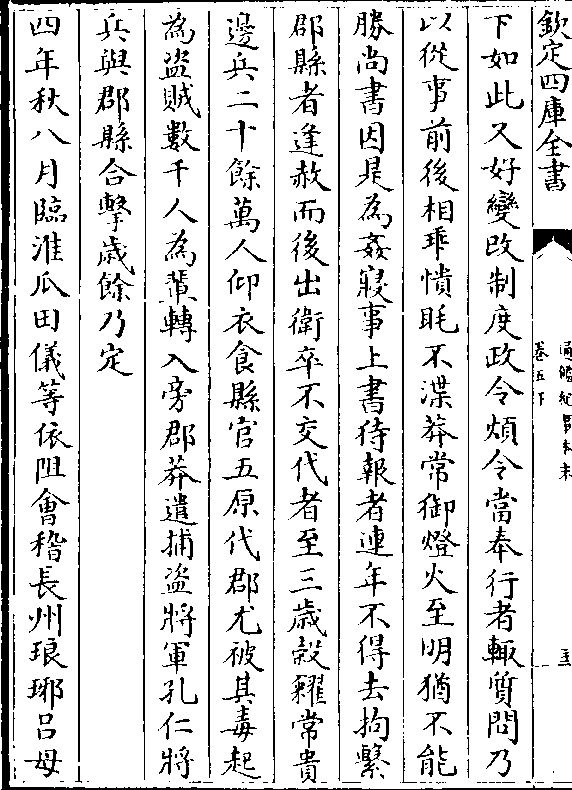 欽定四庫全書
通鑑紀事本末
卷五下
下如此又好變改制度政令煩令當奉行者輙質問乃
以從事前後相乖憒眊不渫莽常御燈火至明猶不能
勝尚書因是為姦寢事上書待報者連年不得去拘繫
郡縣者逢赦而後出衛卒不交代者至三歳穀糴常貴
邊兵二十餘萬人仰衣食縣官五原代郡尤被其毒起
為盜賊數千人為輩轉入旁郡莽遣捕盜將軍孔仁將
兵與郡縣合擊歳餘乃定
四年秋八月臨淮瓜田儀等依阻會稽長州琅琊吕母